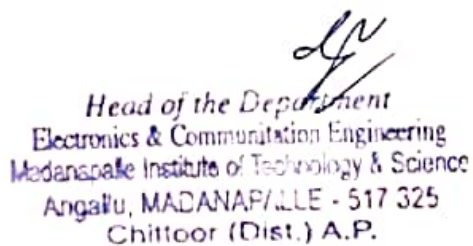 Head of the Department
Electronics & Communitation Engineering
Madanapalle Institute of Technology & Science
Angallu, MADANAPALLE - 517 325
Chittoor (Dist.) A.P.